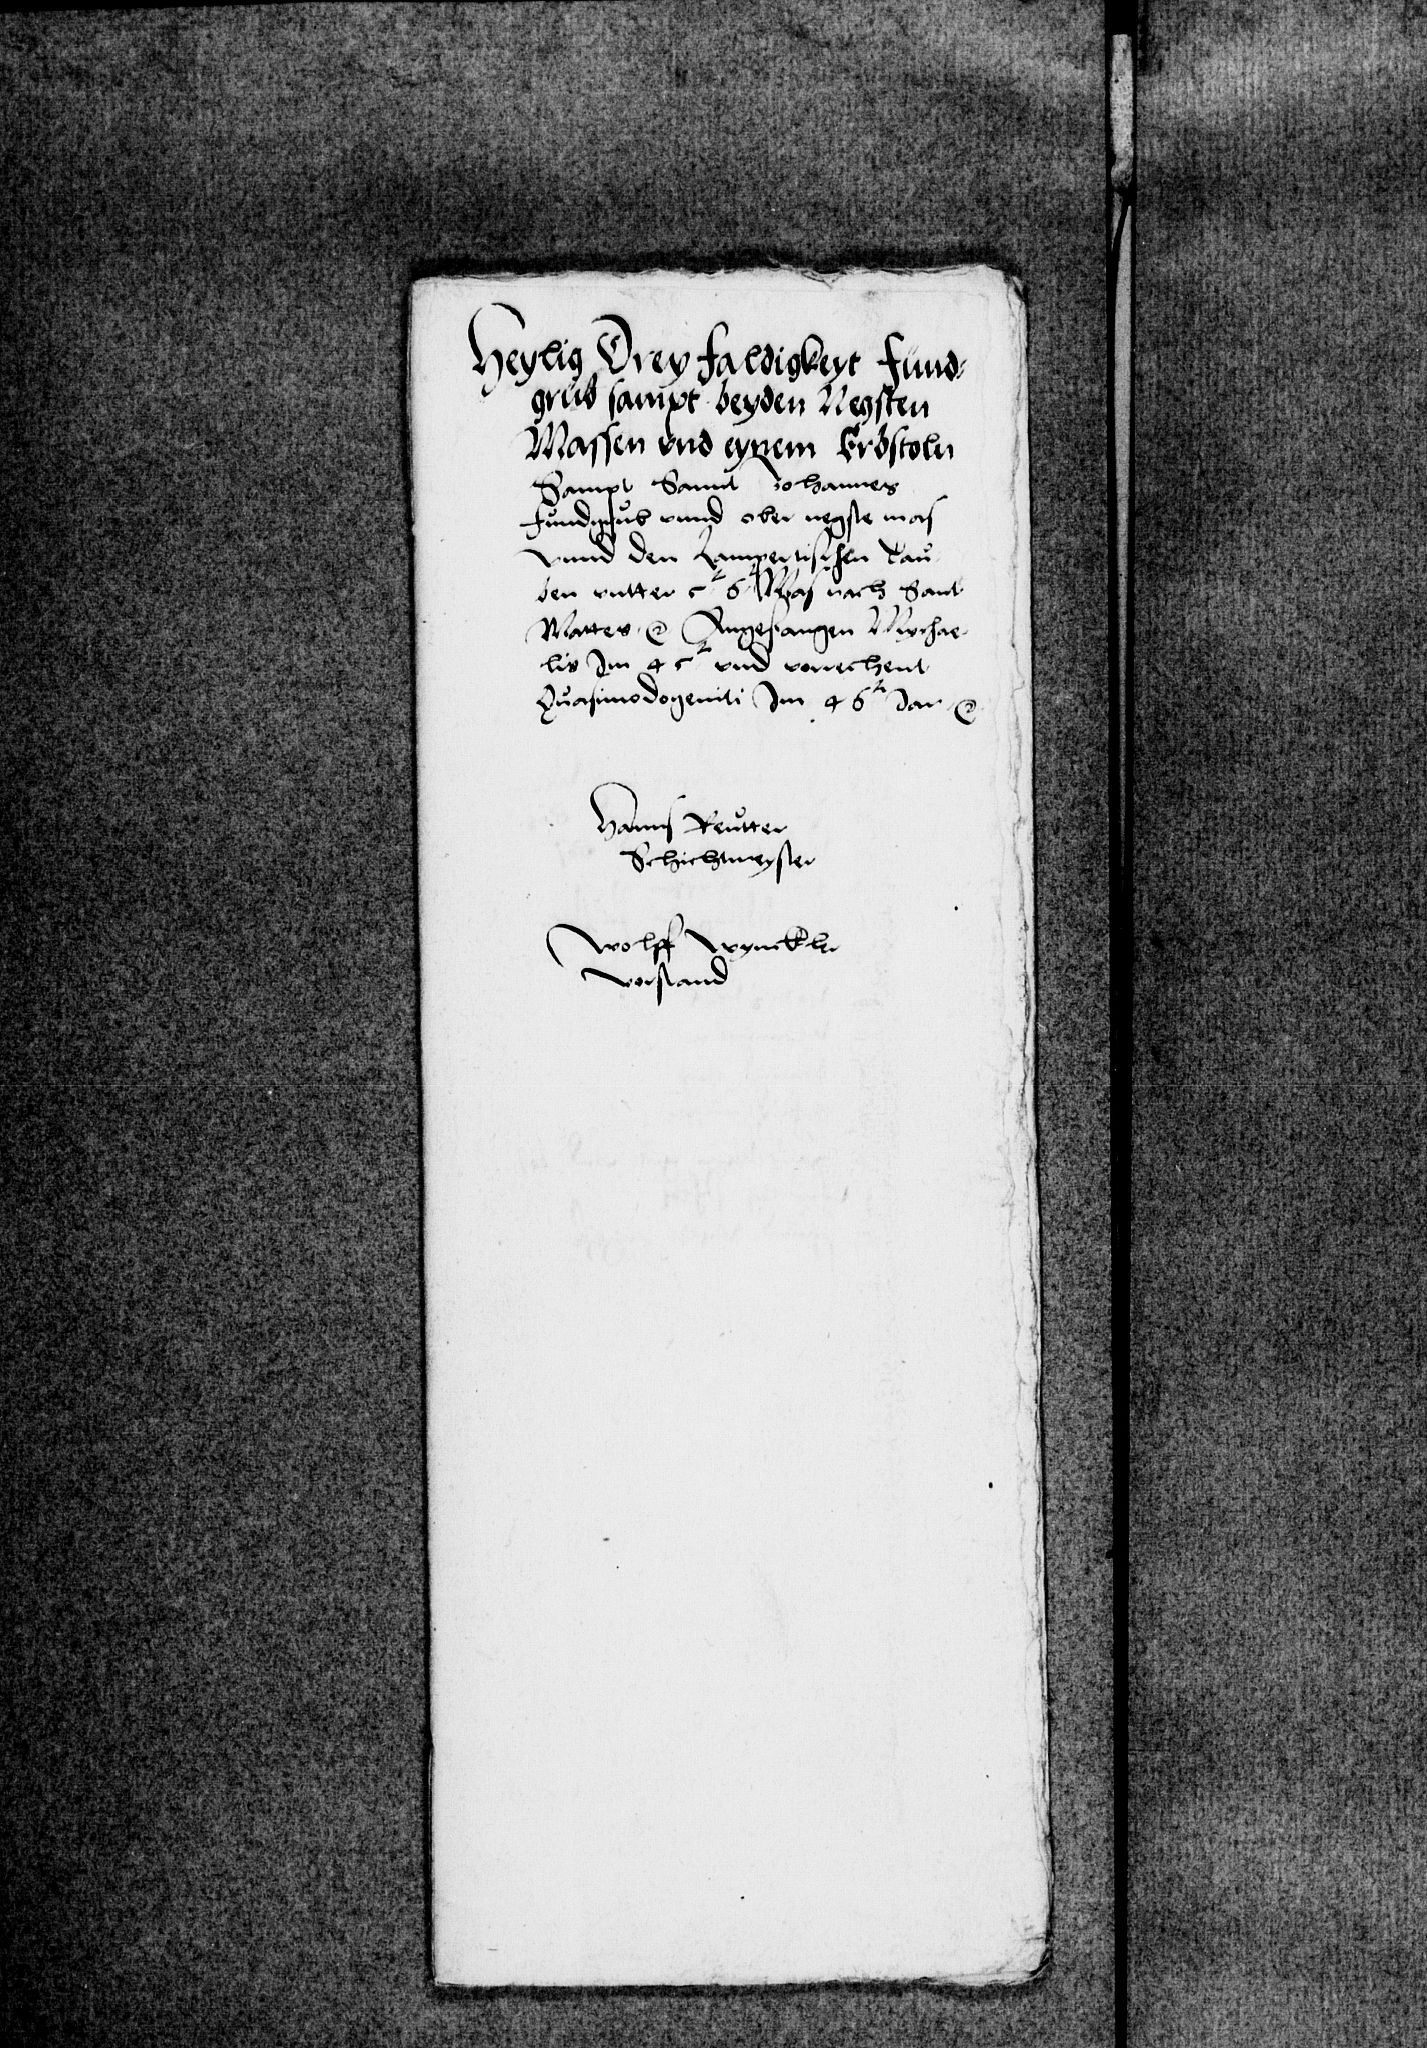 Heylig Dreyfaldigkeyt Fund-
grub sampt beyden Negsten
Massen vnd eynem Erbstoln
Sampt Sannt Johannes
fundgrub vnnd ober negste mas
vnnd den Lampertischen
ben vntter 5 6 Mas nach Sant
Mattes Angefangen Mychae-
lis Im 45 vnd vorrechent
Quasimodogeniti Im 46 Jar
Hanns Reutter
Schichtmeyster
Wolff Wynckler
vorstand